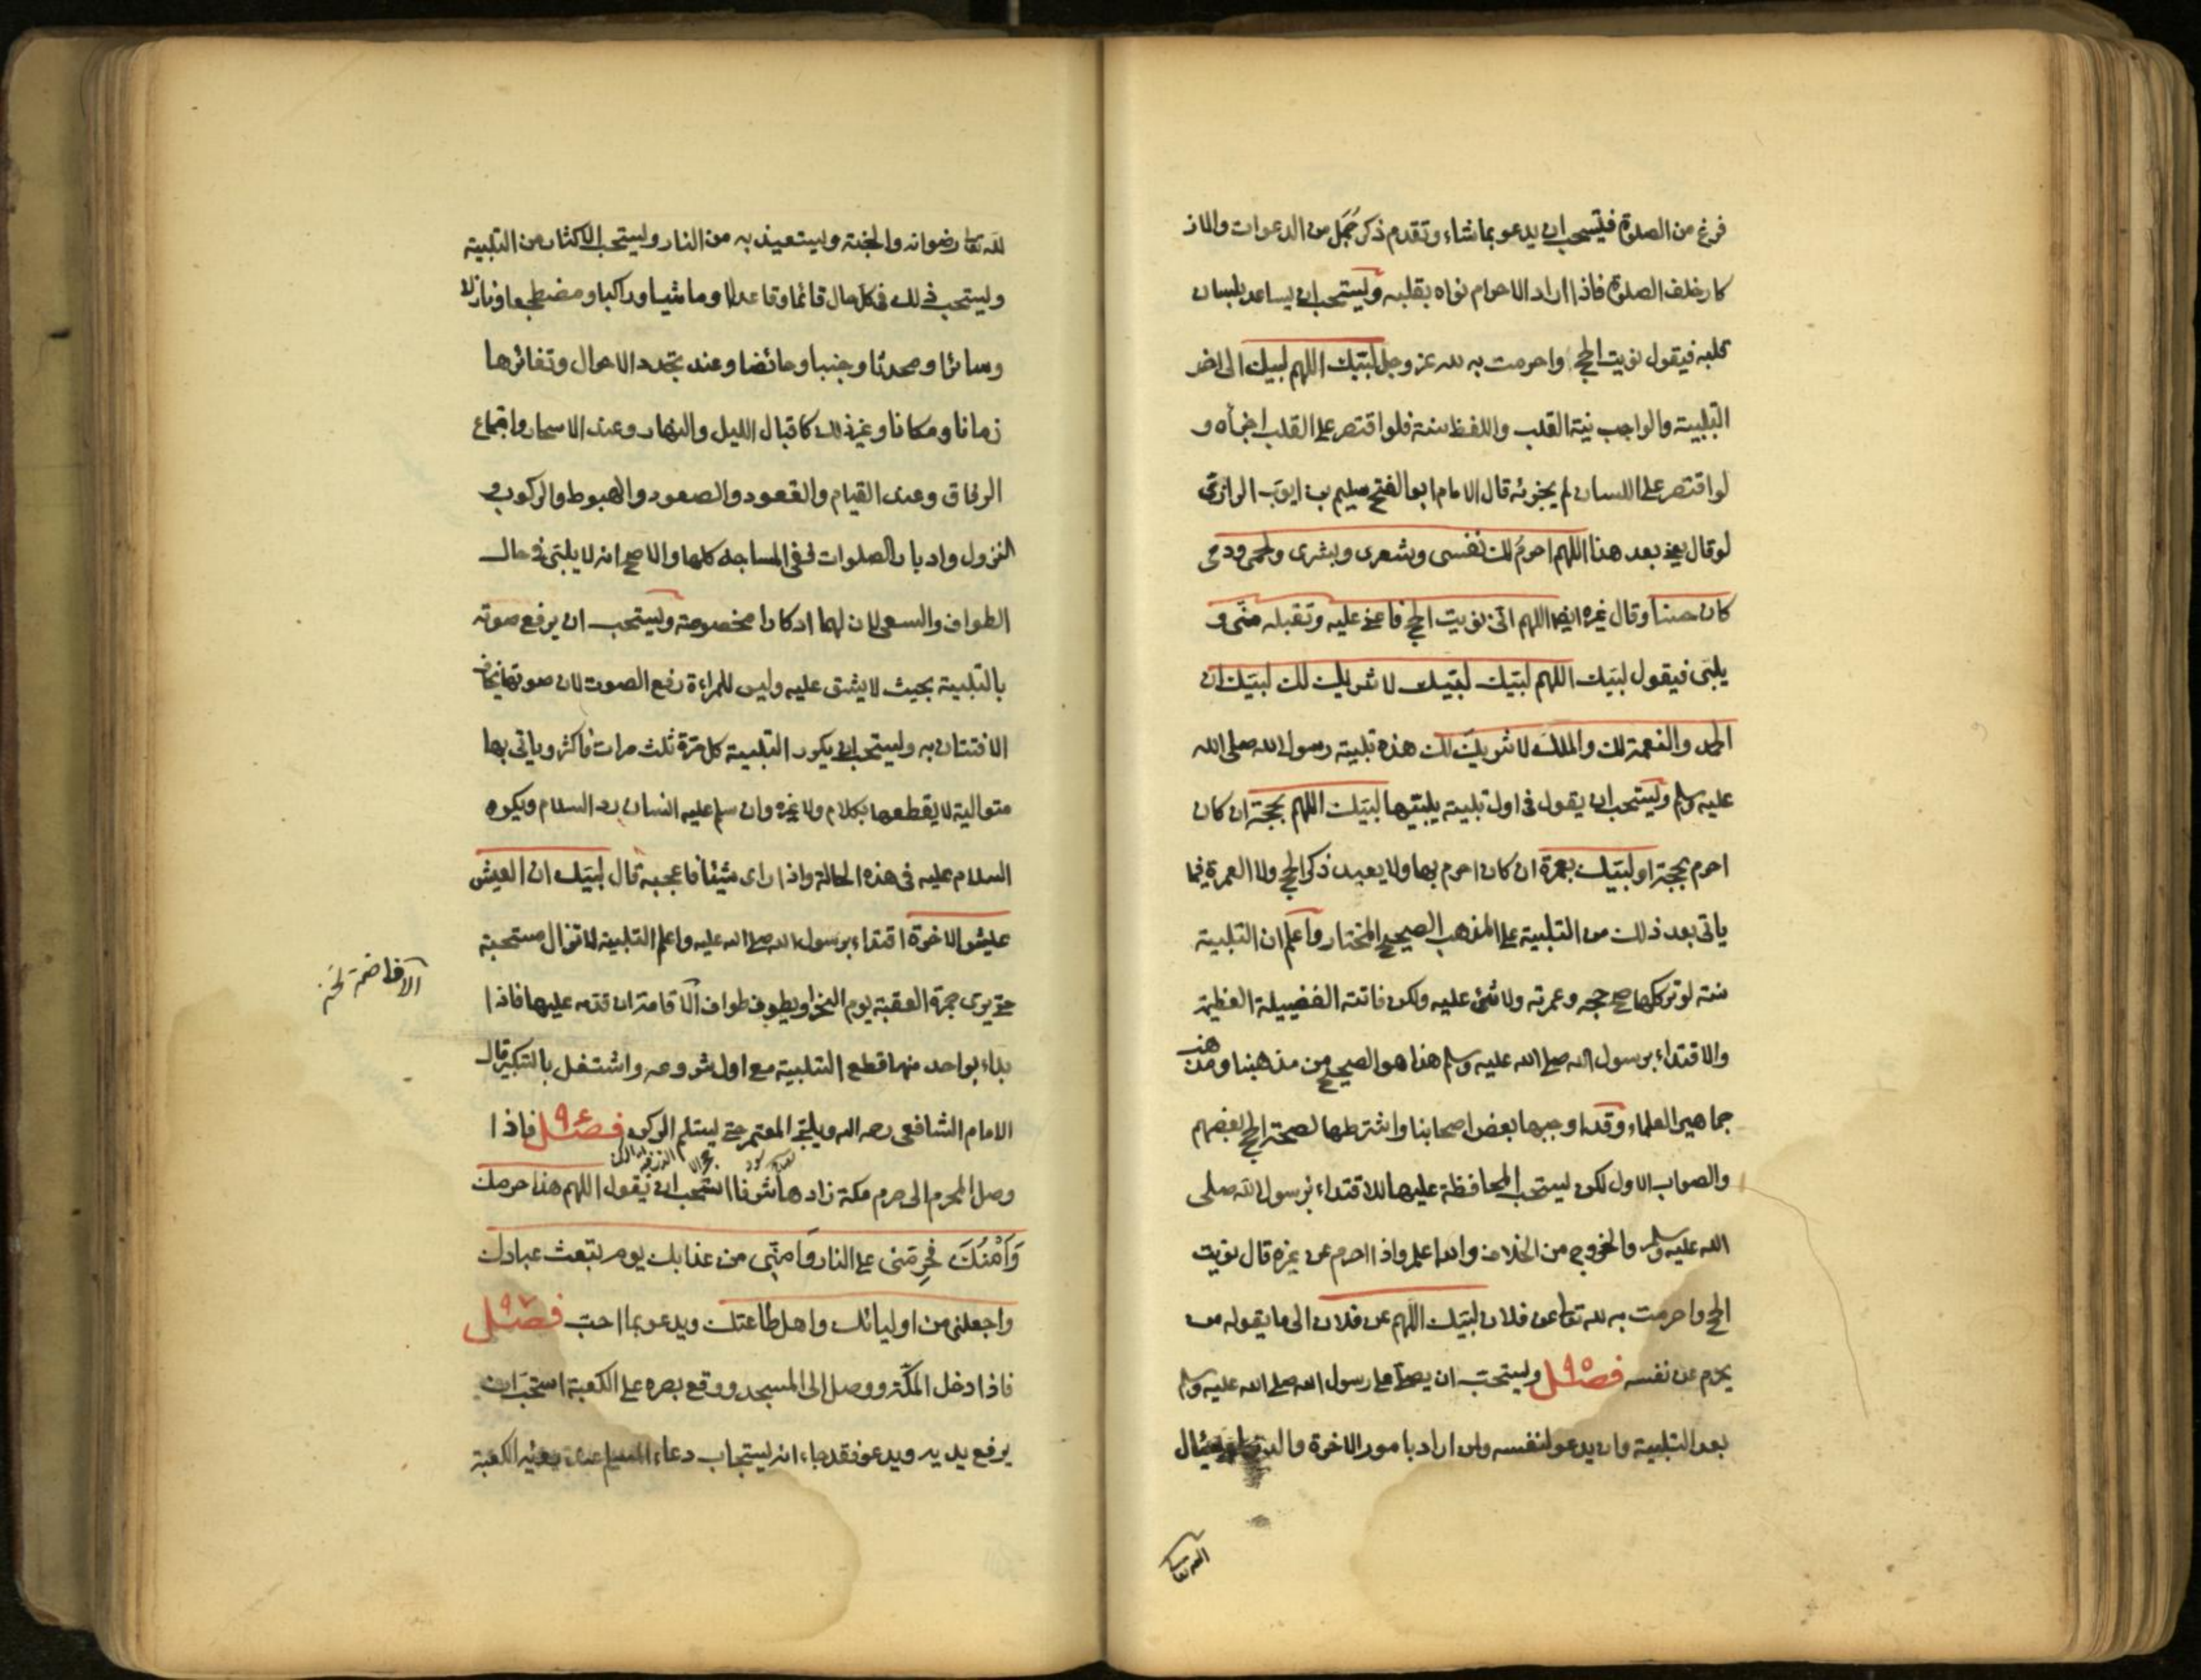 فرغ من الصلوة فيستحب ان يدعو بما شاء وتقدم ذكر جُمَل من الدعوات والاذ
كار خلف الصلوة فاذا اراد الاحرام نواه بقلبه ويستحب ان يساعد بلسانه
قلبه فيقول نويت الحج واحرمت به لله عز وجل لبّيك اللهم لبيك الى اخر
التلبية والواجب نية القلب واللفظ سنة فلو اقتصر على القلب اجزأه و
لو اقتصر على اللسان لم يجزئه قال الامام ابو الفتح سليم بن ايوب الرازي
لو قال يعني بعد هذا اللهم احرم لك نفسي وشعري وبشري ولحمي ودمي
كان حسنا وقال غيره ايضا اللهم انّي نويت الحج فاعني عليه وتقبله منّي و
يلبّي فيقول لبّيك اللهم لبّيك لبّيك لا شريك لك لبّيك ان
الحمد والنعمة لك والملك لا شريك لك هذه تلبية رسول الله صلى الله
عليه وسلم ويستحب ان يقول في اول تلبية يلبّيها لبّيك اللهم بحجة ان كان
احرم بحجة او لبّيك بعمرة ان كان احرم بها ولا يعيد ذكر الحج ولا العمرة فيما
ياتي بعد ذلك من التلبية على المذهب الصحيح المختار واعلم ان التلبية
سنة لو تركها صح حجه وعمرته ولا شئ عليه ولكن فاتته الفضيلة العظيمة
والاقتداء برسول الله صلى الله عليه وسلم هذا هو الصحيح من مذهبنا ومذهب
جماهير العلماء وقد اوجبها بعض اصحابنا واشترطها لصحة الحج بعضهم
والصواب الاول لكن يستحب المحافظة عليها للاقتداء برسول الله صلى
الله عليه وسلم والخروج من الخلاف والله اعلم واذا احرم عن غيره قال نويت
الحج واحرمت به لله تعالى عن فلان لبّيك اللهم عن فلان الى ما يقوله من
يحرم عن نفسه فصل ٩٥ ويستحبّ ان يصلّي على رسول الله صلى الله عليه وسلم
بعد التلبية وان يدعو لنفسه ولمن اراد بامور الاخرة والدنيا ويسئال
الله تعالى
لله تعالى رضوانه والجنة ويستعيذ به من النار ويستحب الاكثار من التلبية
ويستحب ذلك في كل حال قائما وقاعدا وماشيا وراكبا ومضطجعا ونازلا
وسائرا ومحدثا وجنبا وحائضا وعند تجدد الاحوال وتغائرها
زمانا ومكانا وغير ذلك كاقبال الليل والنهار وعند الاسحار واجتماع
الرفاق وعند القيام والقعود والصعود والهبوط والركوب و
النزول وادبار الصلوات وفي المساجد كلها والاصح انه لا يلبّي في حال
الطواف والسعي لان لهما اذكارا مخصوصة ويستحب ان يرفع صوته
بالتلبية بحيث لا يشق عليه وليس للمراءة رفع الصوت لان صوتها يخاف
الافتتان به ويستحب ان يكرر التلبية كل مرّة ثلث مرات فاكثر وياتي بها
متوالية لا يقطعها بكلام ولا غيره وان سلم عليه انسان رد السلام ويكره
السلام عليه في هذه الحالة واذا راى شيئا فاعجبه قال لبّيك ان العيش
عيش الاخرة اقتداء برسول الله صلى الله عليه واعلم التلبية لا تزال مستحبة
حتى يرى جمرة العقبة يوم النحر او يطوف طواف الاقامة ان قدمه عليها فاذا
الافاضة نخ
بداء بواحد منهما قطع التلبية مع اول شروعه واشتغل بالتكبير قال
الامام الشافعي رحمه الله ويلبّي المعتمر حتى يستلم الركن فصل ٩٦ فاذا
وصل المحرم الى حرم مكة زادها شرفا استحب ان يقول اللهم هذا حرمك
وَاَمْنُكَ فحرّمني على النار وامنّي من عذابك يوم تبعث عبادك
واجعلني من اوليائك واهل طاعتك ويدعو بما احبّ فصل ٩٧
فاذا دخل المكّة ووصل الى المسجد ووقع بصره على الكعبة استحبّ ان
يرفع يديه ويدعو فقد جاء انه يستجاب دعاء المسلم عند رؤية الكعبة